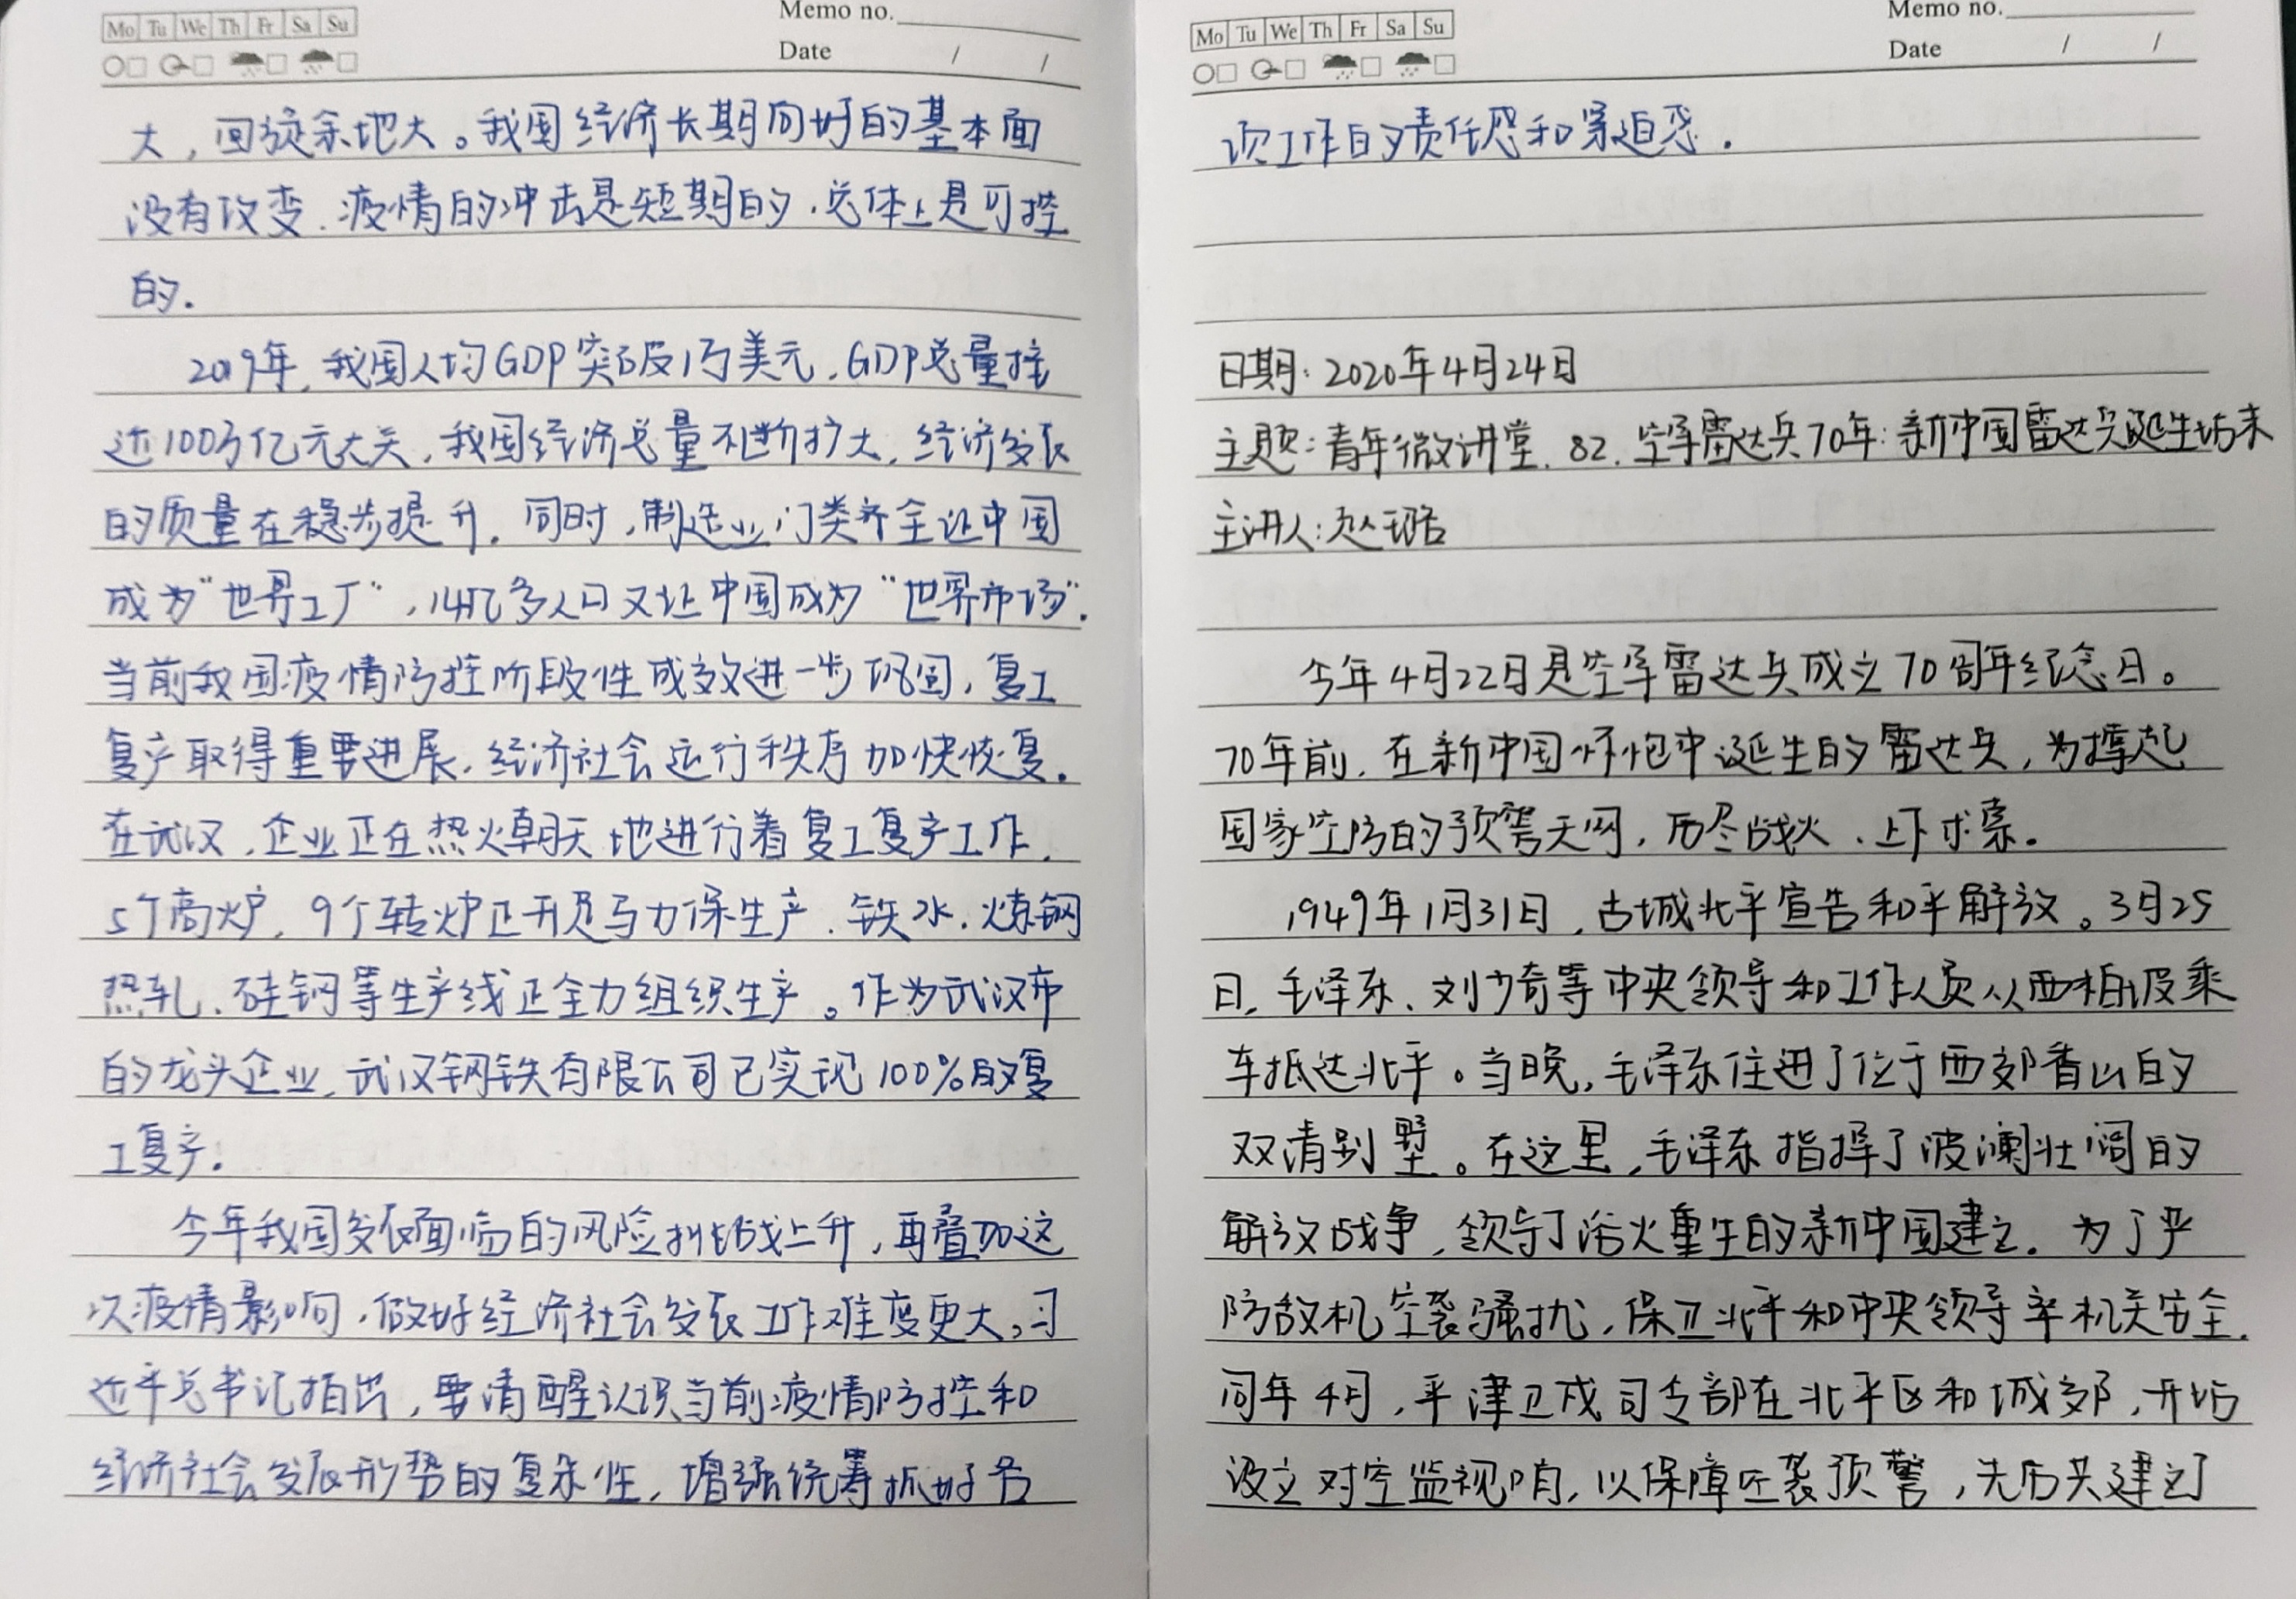 Mo Tu We Th Fr Sa Su
Memo no.
Date / /
大，回旋余地大。我国经济长期向好的基本面
没有改变.疫情的冲击是短期的.总体上是可控
的.
2019年,我国人均GDP突破1万美元,GDP总量接
近100万亿元大关,我国经济总量不断扩大,经济发展
的质量在稳步提升.同时,制造业门类齐全让中国
成为“世界工厂”,14亿多人口又让中国成为“世界市场”.
当前我国疫情防控阶段性成效进一步巩固,复工
复产取得重要进展.经济社会运行秩序加快恢复.
在武汉,企业正在热火朝天地进行着复工复产工作.
5个高炉,9个转炉正开足马力保生产.铁水.炼钢
热轧、硅钢等生产线正全力组织生产。作为武汉市
的龙头企业,武汉钢铁有限公司已实现100%的复
工复产.
今年我国发展面临的风险挑战上升,再叠加这
次疫情影响,做好经济社会发展工作难度更大,习
近平总书记指出,要清醒认识当前疫情防控和
经济社会发展形势的复杂性,增强统筹抓好各
Mo Tu We Th Fr Sa Su
Memo no.
Date / /
项工作的责任感和紧迫感.
日期:2020年4月24日
主题:青年微讲堂.82.空军雷达兵70年:新中国雷达兵诞生始末
主讲人:赵璐
今年4月22日是空军雷达兵成立70周年纪念日。
70年前,在新中国怀抱中诞生的雷达兵,为撑起
国家空防的预警天网,历尽战火、上下求索。
1949年1月31日,古城北平宣告和平解放。3月25
日,毛泽东、刘少奇等中央领导和工作人员从西柏坡乘
车抵达北平。当晚,毛泽东住进了位于西郊香山的
双清别墅。在这里,毛泽东指挥了波澜壮阔的
解放战争,领导了浴火重生的新中国建立.为了严
防敌机空袭骚扰,保卫北平和中央领导率机关安全.
同年4月,平津卫戍司令部在北平区和城郊,开始
设立对空监视哨,以保障空袭预警,先后共建立了